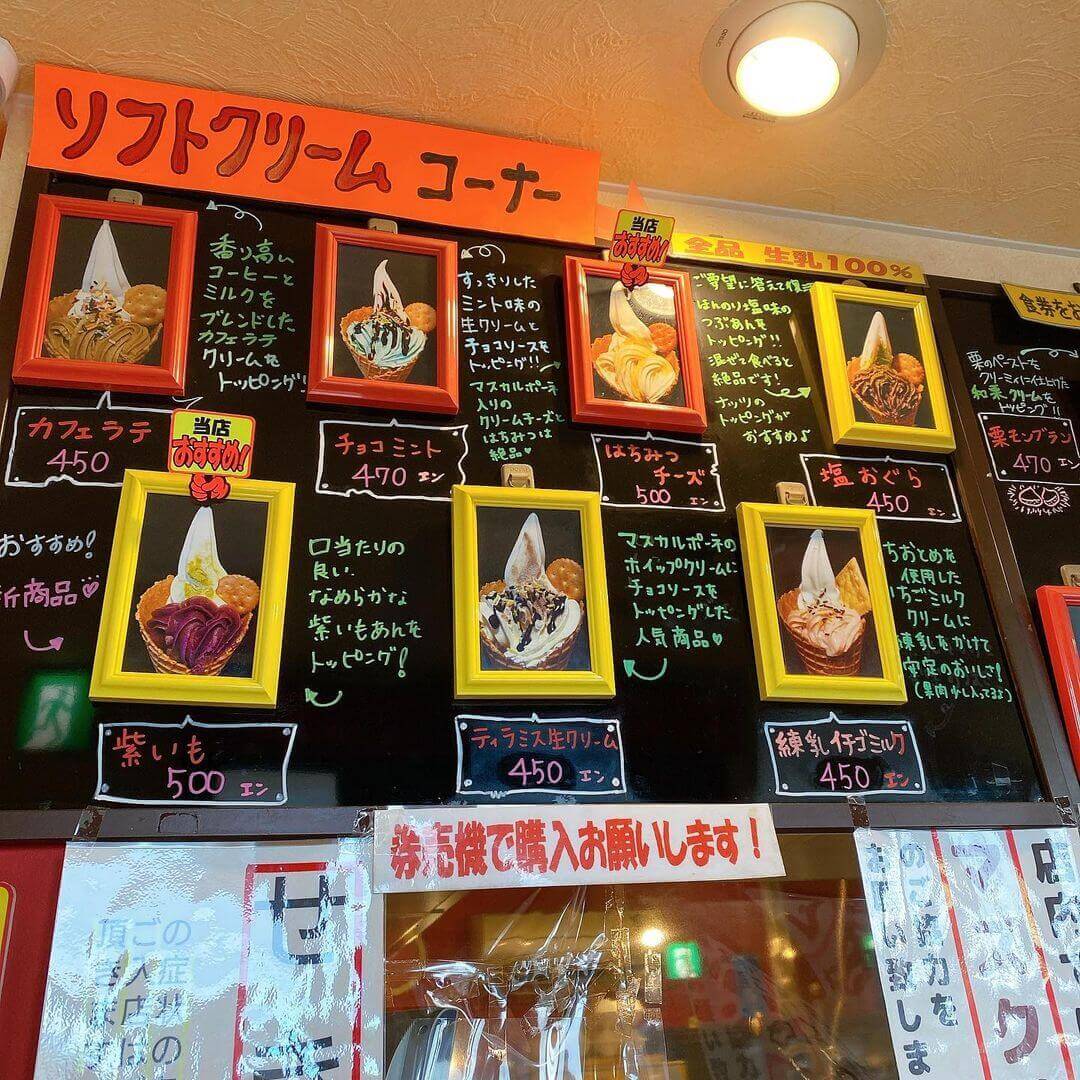 ソフトクリーム コーナー
全品 生乳100%
食券をお
香り高い
コーヒーと
ミルクを
ブレンドした
カフェラテ
クリームを
トッピング!
カフェラテ
450
すっきりした
ミント味の
生クリームと
チョコソースを
トッピング!!
チョコミント
470 エン
マスカルポーネ
入りの
クリームチーズと
はちみつは
絶品♥
当店
おすすめ!
はちみつ
チーズ
500 エン
ご要望に答えて復
ほんのり塩味の
つぶあんを
トッピング!!
混ぜて食べると
絶品です!
ナッツの
トッピングが
おすすめ♪
塩おぐら
450 エン
栗のペーストを
クリーミィに仕上げた
和栗クリームを
トッピング!!
栗モンブラン
470 エン
おすすめ!
新商品♡
当店
おすすめ!
口当たりの
良い
なめらかな
紫いもあんを
トッピング!
紫いも
500 エン
マスカルポーネの
ホイップクリームに
チョコソースを
トッピングした
人気商品♥
ティラミス生クリーム
450 エン
ちおとめを
使用した
いちごミルク
クリームに
練乳をかけて
安定のおいしさ!
(果肉少し入ってるよ)
練乳イチゴミルク
450 エン
券売機で購入お願いします!
店内で
マスク
のご協力を
お願い致しま